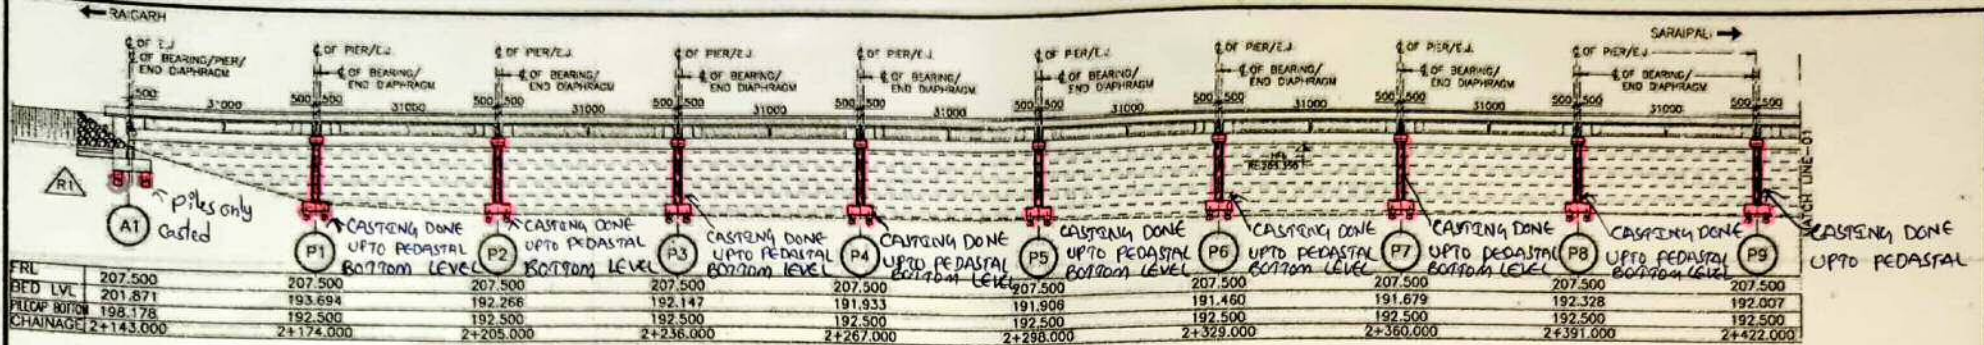 ← RAIGARH
SARAIPALI →
℄ OF E.J
℄ OF BEARING/PIER/
END DIAPHRAGM
℄ OF PIER/E.J.
℄ OF BEARING/
END DIAPHRAGM
℄ OF PIER/E.J.
℄ OF BEARING/
END DIAPHRAGM
℄ OF PIER/E.J.
℄ OF BEARING/
END DIAPHRAGM
℄ OF PIER/E.J.
℄ OF BEARING/
END DIAPHRAGM
℄ OF PIER/E.J.
℄ OF BEARING/
END DIAPHRAGM
℄ OF PIER/E.J
℄ OF BEARING/
END DIAPHRAGM
℄ OF PIER/E.J.
℄ OF BEARING/
END DIAPHRAGM
℄ OF PIER/E.J
℄ OF BEARING/
END DIAPHRAGM
500 31000 500 500 31000 500 500 31000 500 500 31000 500 500 31000 500 500 31000 500 500 31000 500 500 31000 500 500 31000 500 500
HFL
MATCH LINE-01
R1
Piles only
Casted
A1
P1
CASTING DONE
UPTO PEDASTAL
BOTTOM LEVEL
P2
CASTING DONE
UPTO PEDASTAL
BOTTOM LEVEL
P3
CASTING DONE
UPTO PEDASTAL
BOTTOM LEVEL
P4
CASTING DONE
UPTO PEDASTAL
BOTTOM LEVEL
P5
CASTING DONE
UPTO PEDASTAL
BOTTOM LEVEL
P6
CASTING DONE
UPTO PEDASTAL
BOTTOM LEVEL
P7
CASTING DONE
UPTO PEDASTAL
BOTTOM LEVEL
P8
CASTING DONE
UPTO PEDASTAL
BOTTOM LEVEL
P9
CASTING DONE
UPTO PEDASTAL
FRL 207.500 207.500 207.500 207.500 207.500 207.500 207.500 207.500 207.500 207.500
BED LVL 201.871 193.694 192.266 192.147 191.933 191.906 191.460 191.679 192.328 192.007
PILECAP BOTTOM 198.178 192.500 192.500 192.500 192.500 192.500 192.500 192.500 192.500 192.500
CHAINAGE 2+143.000 2+174.000 2+205.000 2+236.000 2+267.000 2+298.000 2+329.000 2+360.000 2+391.000 2+422.000